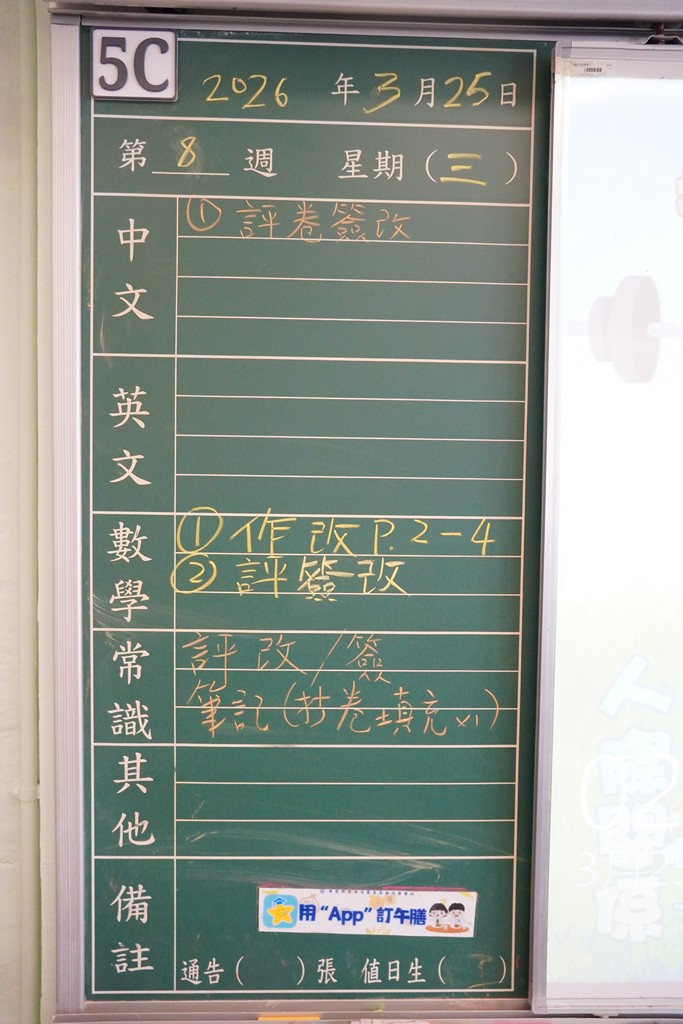 5C
2026 年 3 月 25 日
第 8 週 星期（三）
中文
① 評卷簽改
英文
數學
① 作改 P.2-4
② 評簽改
常識
評改/簽
筆記(抄卷填充x1)
其他
備註
用“App”訂午膳
通告（ ）張 值日生（ ）
人際關係